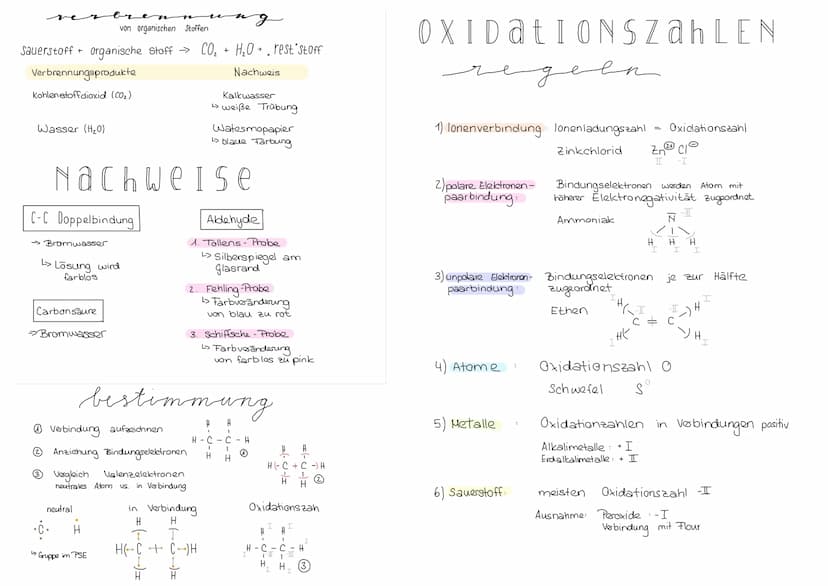 verbrennung
von organischen Stoffen
Sauerstoff + organische Stoff → CO₂ + H₂O + "rest"stoff
Verbrennungsprodukte Nachweis
Kohlenstoffdioxid (CO₂) Kalkwasser
↳ weiße Trübung
Wasser (H₂O) Watesmopapier
↳ blaue Färbung
Nachweise
C-C Doppelbindung
→ Bromwasser
↳ Lösung wird
farblos
Carbonsäure
→ Bromwasser
Aldehyde
1. Tollens-Probe
↳ Silberspiegel am
Glasrand
2. Fehling-Probe
↳ Farbveränderung
von blau zu rot
3. Schiffsche-Probe
↳ Farbveränderung
von farblos zu pink
bestimmung
① Verbindung aufzeichnen
② Anziehung Bindungselektronen
③ Vergleich Valenzelektronen
neutrales Atom vs. in Verbindung
H H
H - C - C - H ①
H H
H H
H (- C + C -) H
H H ②
neutral in Verbindung Oxidationszah
C H
↳ Gruppe im PSE
H H
H (- C + C -) H
H H
I I
H H
H - C - C - H
I I
H H
I I ③
OXIDationszahlen
regeln
1) Ionenverbindung Ionenladungszahl = Oxidationszahl
Zinkchlorid Zn²⁺ Cl⁻
II -I
2) polare Elektronen-
paarbindung: Bindungselektronen werden Atom mit
höherer Elektronegativität zugeordnet
Ammoniak N -III
H H H
I I I
3) unpolare Elektronen-
paarbindung: Bindungselektronen je zur Hälfte
zugeordnet
Ethen
I H H I
C = C
I H H I
4) Atome : Oxidationszahl 0
Schwefel S⁰
5) Metalle : Oxidationzahlen in Verbindungen positiv
Alkalimetalle : + I
Erdalkalimetalle : + II
6) Sauerstoff: meisten Oxidationszahl -II
Ausnahme: Peroxide : -I
Verbindung mit Flour